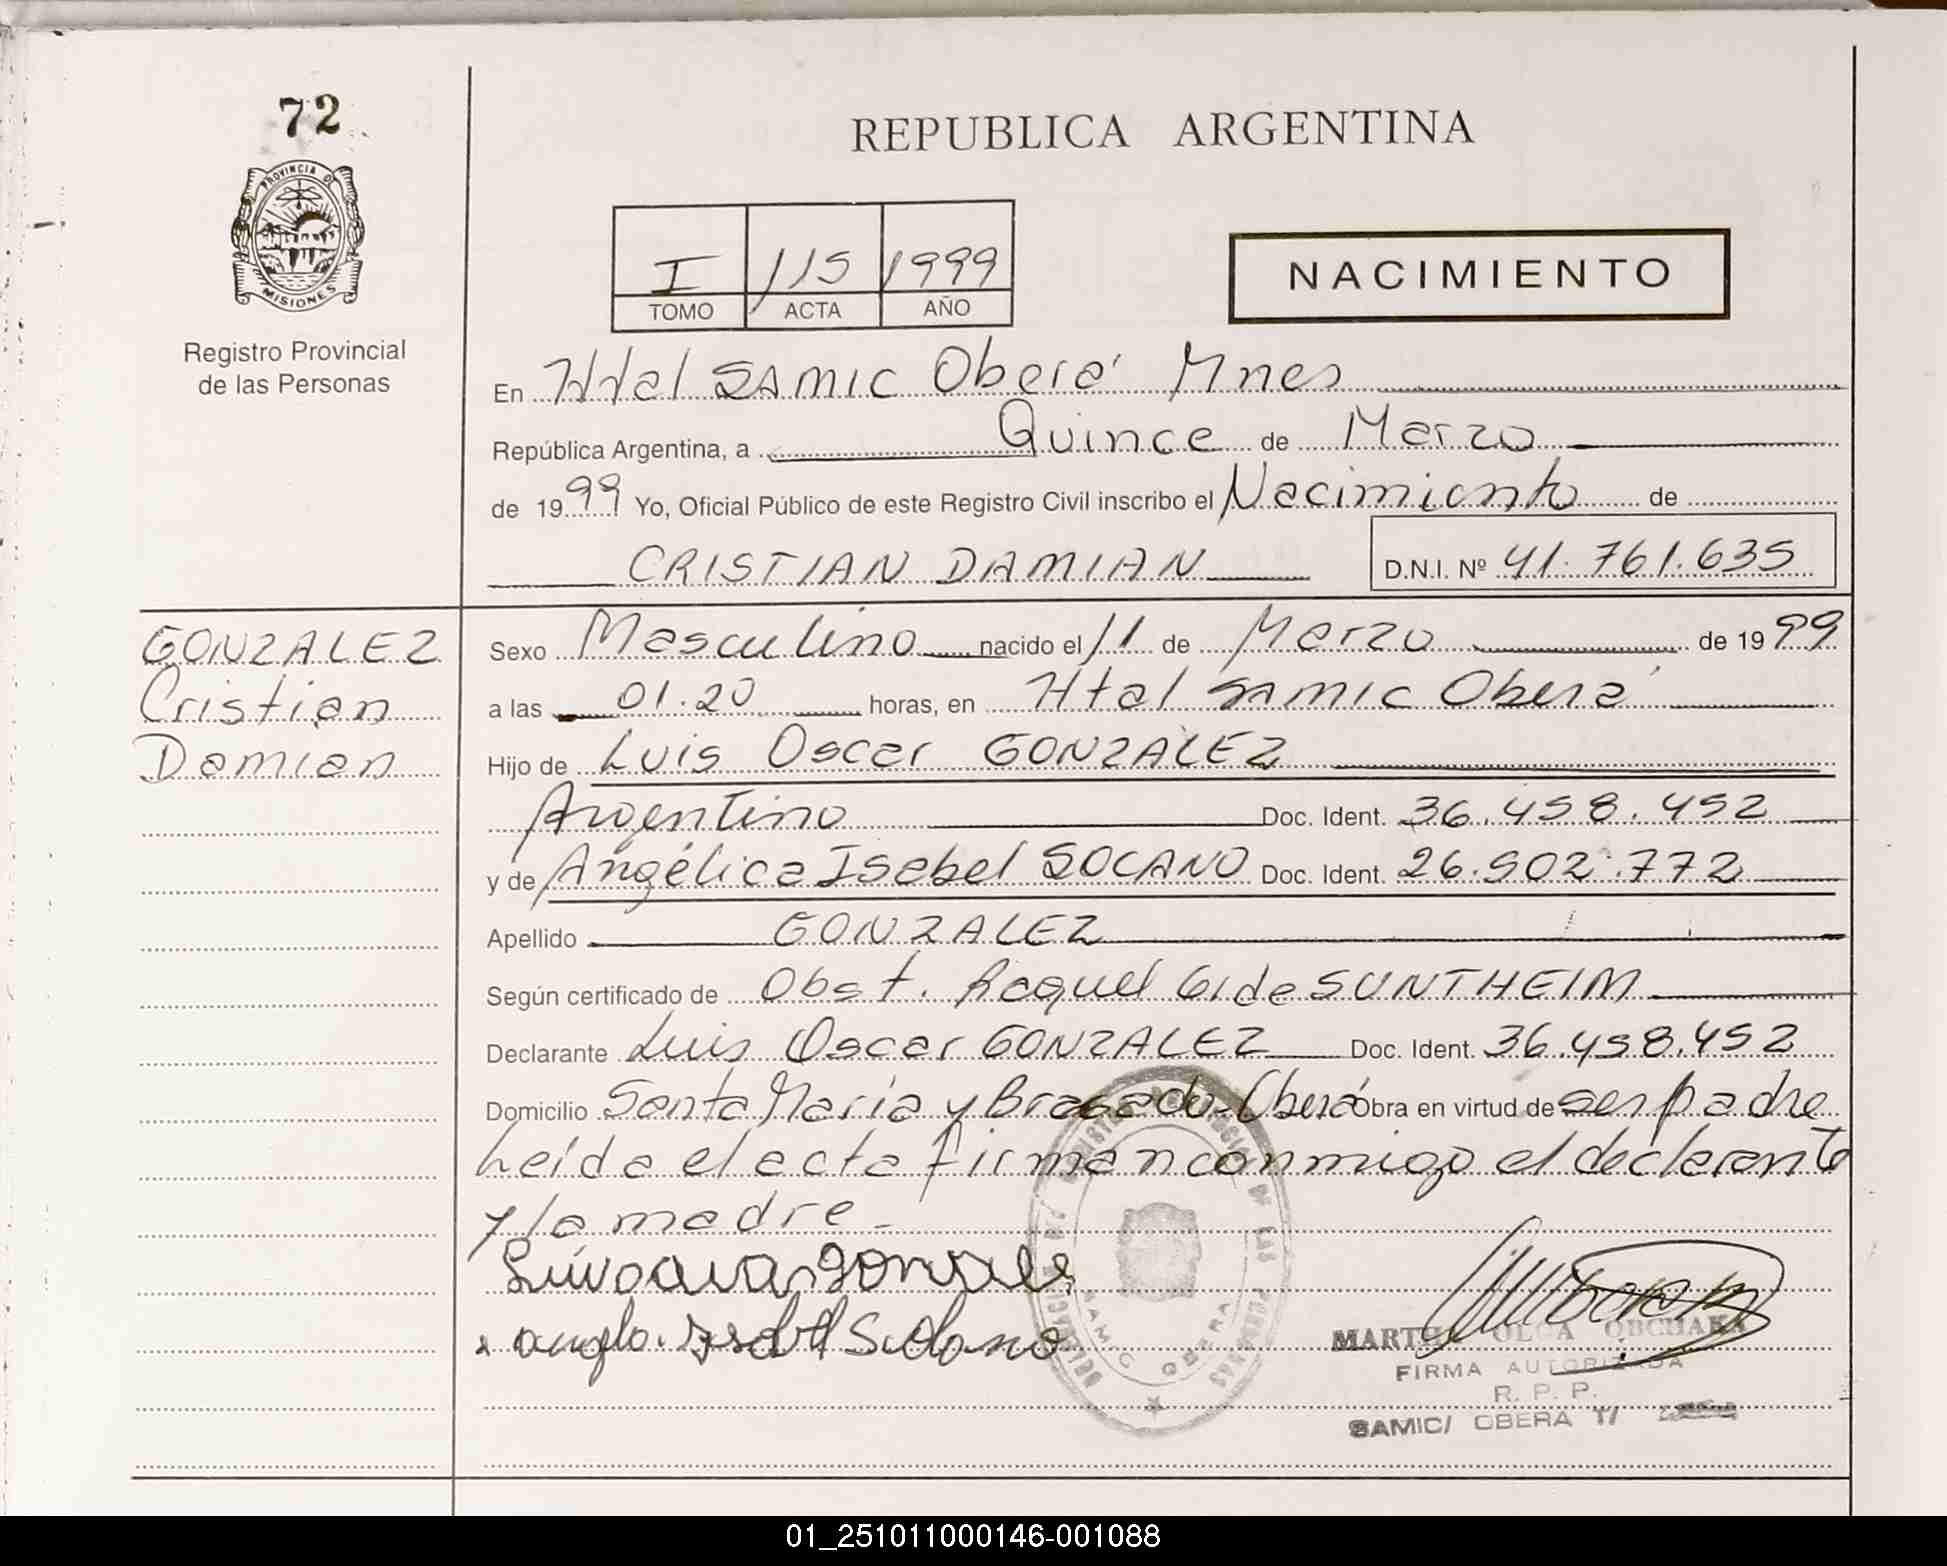 72
PROVINCIA D
MISIONES
Registro Provincial
de las Personas
REPUBLICA ARGENTINA
I 115 1999
TOMO ACTA AÑO
NACIMIENTO
En Htal SAMIC Oberá Mnes
República Argentina, a Quince de Marzo
de 1999 Yo, Oficial Público de este Registro Civil inscribo el Nacimiento de
CRISTIAN DAMIAN D.N.I. Nº 41.761.635
GONZALEZ
Cristian
Damian
Sexo Masculino nacido el 11 de Marzo de 1999
a las 01.20 horas, en Htal SAMIC Oberá
Hijo de Luis Oscar GONZALEZ
Argentino Doc. Ident. 36.458.452
y de Angélica Isabel SOCANO Doc. Ident. 26.502.772
Apellido GONZALEZ
Según certificado de Obst. Raquel G. de SUNTHEIM
Declarante Luis Oscar GONZALEZ Doc. Ident. 36.458.452
Domicilio Santa María y Bragado-Oberá Obra en virtud de ser padre
Leída el acta firman conmigo el declarante
y la madre-
MARTHA OLGA
FIRMA AUTORIZADA
R. P. P.
SAMIC/ OBERA T/
SAMIC OBERA
01_251011000146-001088